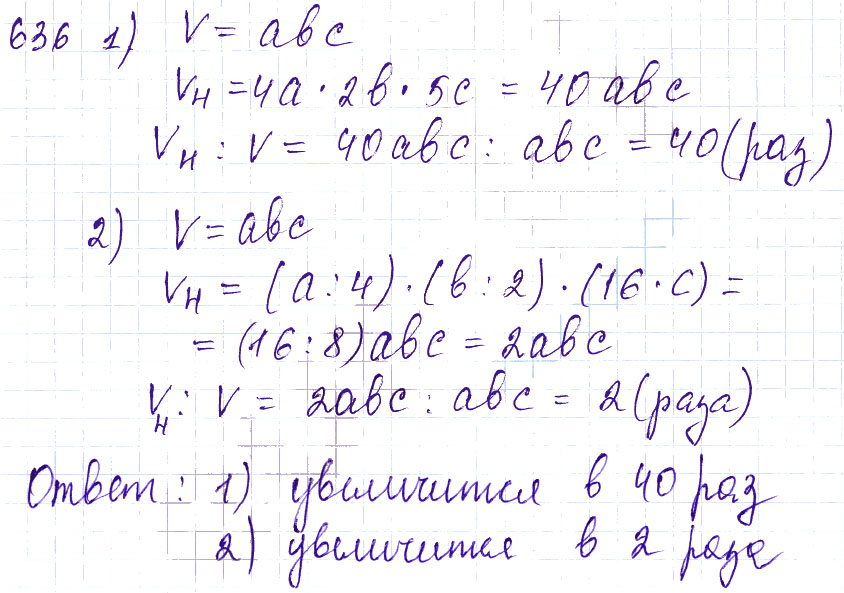 636 1) V = abc
Vн = 4a · 2b · 5c = 40abc
Vн : V = 40abc : abc = 40 (раз)
2) V = abc
Vн = (a : 4) · (b : 2) · (16 · c) =
= (16 : 8)abc = 2abc
Vн : V = 2abc : abc = 2 (раза)
Ответ : 1) увеличится в 40 раз
2) увеличится в 2 раза